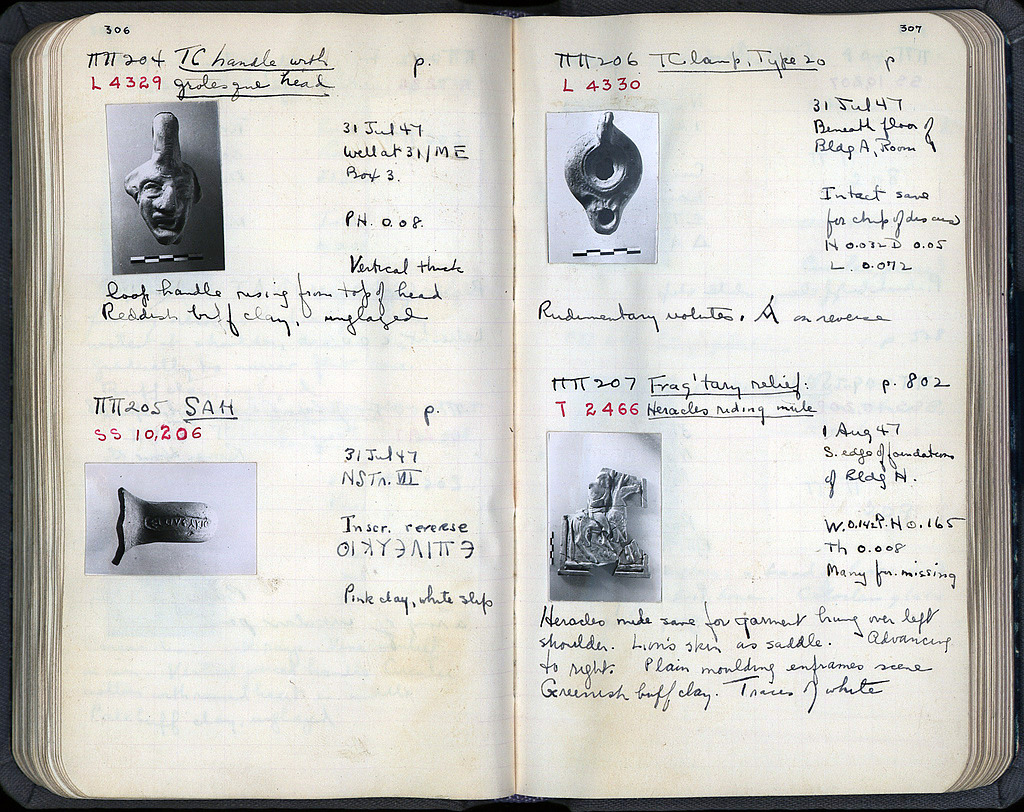 306
ΠΠ 204 TC handle with p.
L 4329 grotesque head
31 Jul 47
Well at 31/ΜΕ
Box 3.
P.H. 0.08.
Vertical thick
loop handle rising from top of head
Reddish buff clay, unglazed
ΠΠ 205 SAH p.
SS 10,206
31 Jul 47
NSTr. VII
Inscr. reverse
Pink clay, white slip
307
ΠΠ 206 TC lamp, Type 20 p
L 4330
31 Jul 47
Beneath floor of
Bldg A, Room 1
Intact save
for chip of discus
H 0.032 D 0.05
L. 0.072
Rudimentary volutes. A on reverse
ΠΠ 207 Frag'tary relief: p. 802
T 2466 Heracles riding mule
1 Aug 47
S. edge of foundations
of Bldg H.
W. 0.142 P.H 0.165
Th 0.008
Many fr. missing
Heracles nude save for garment hung over left
shoulder. Lion's skin as saddle. Advancing
to right. Plain moulding enframes scene
Greenish buff clay. Traces of white